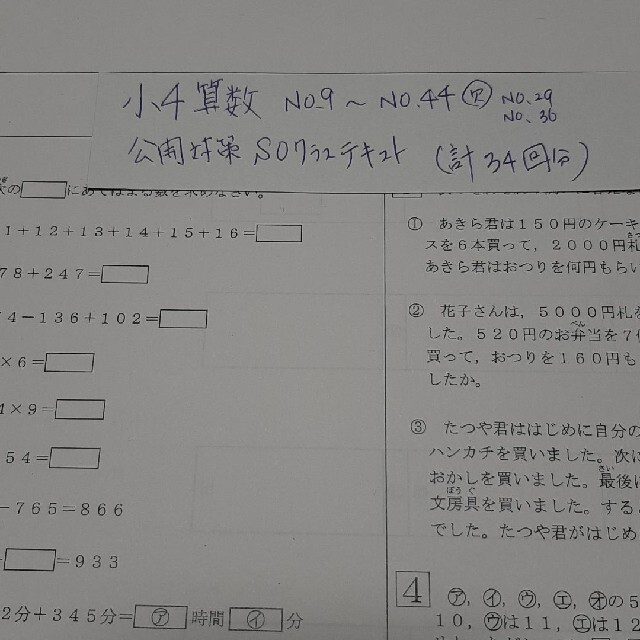 小4算数 NO.9～NO.44 欠 NO.29
NO.36
公開対策 SOクラステキスト (計34回分)
次の□にあてはまる数を求めなさい。
1+12+13+14+15+16=□
78+247=□
4-136+102=□
×6=□
×9=□
54=□
-765=866
□=933
2分+345分=㋐時間㋑分
① あきら君は150円のケーキ
スを6本買って,2000円札
あきら君はおつりを何円もらい
② 花子さんは,5000円札を
した。520円のお弁当を7
買って,おつりを160円も
したか。
③ たつや君ははじめに自分の
ハンカチを買いました。次に
おかしを買いました。最後に
文房具を買いました。する
でした。たつや君がはじめ
4 ㋐,㋑,㋒,㋓,㋔の5
10,㋒は11,㋓は12